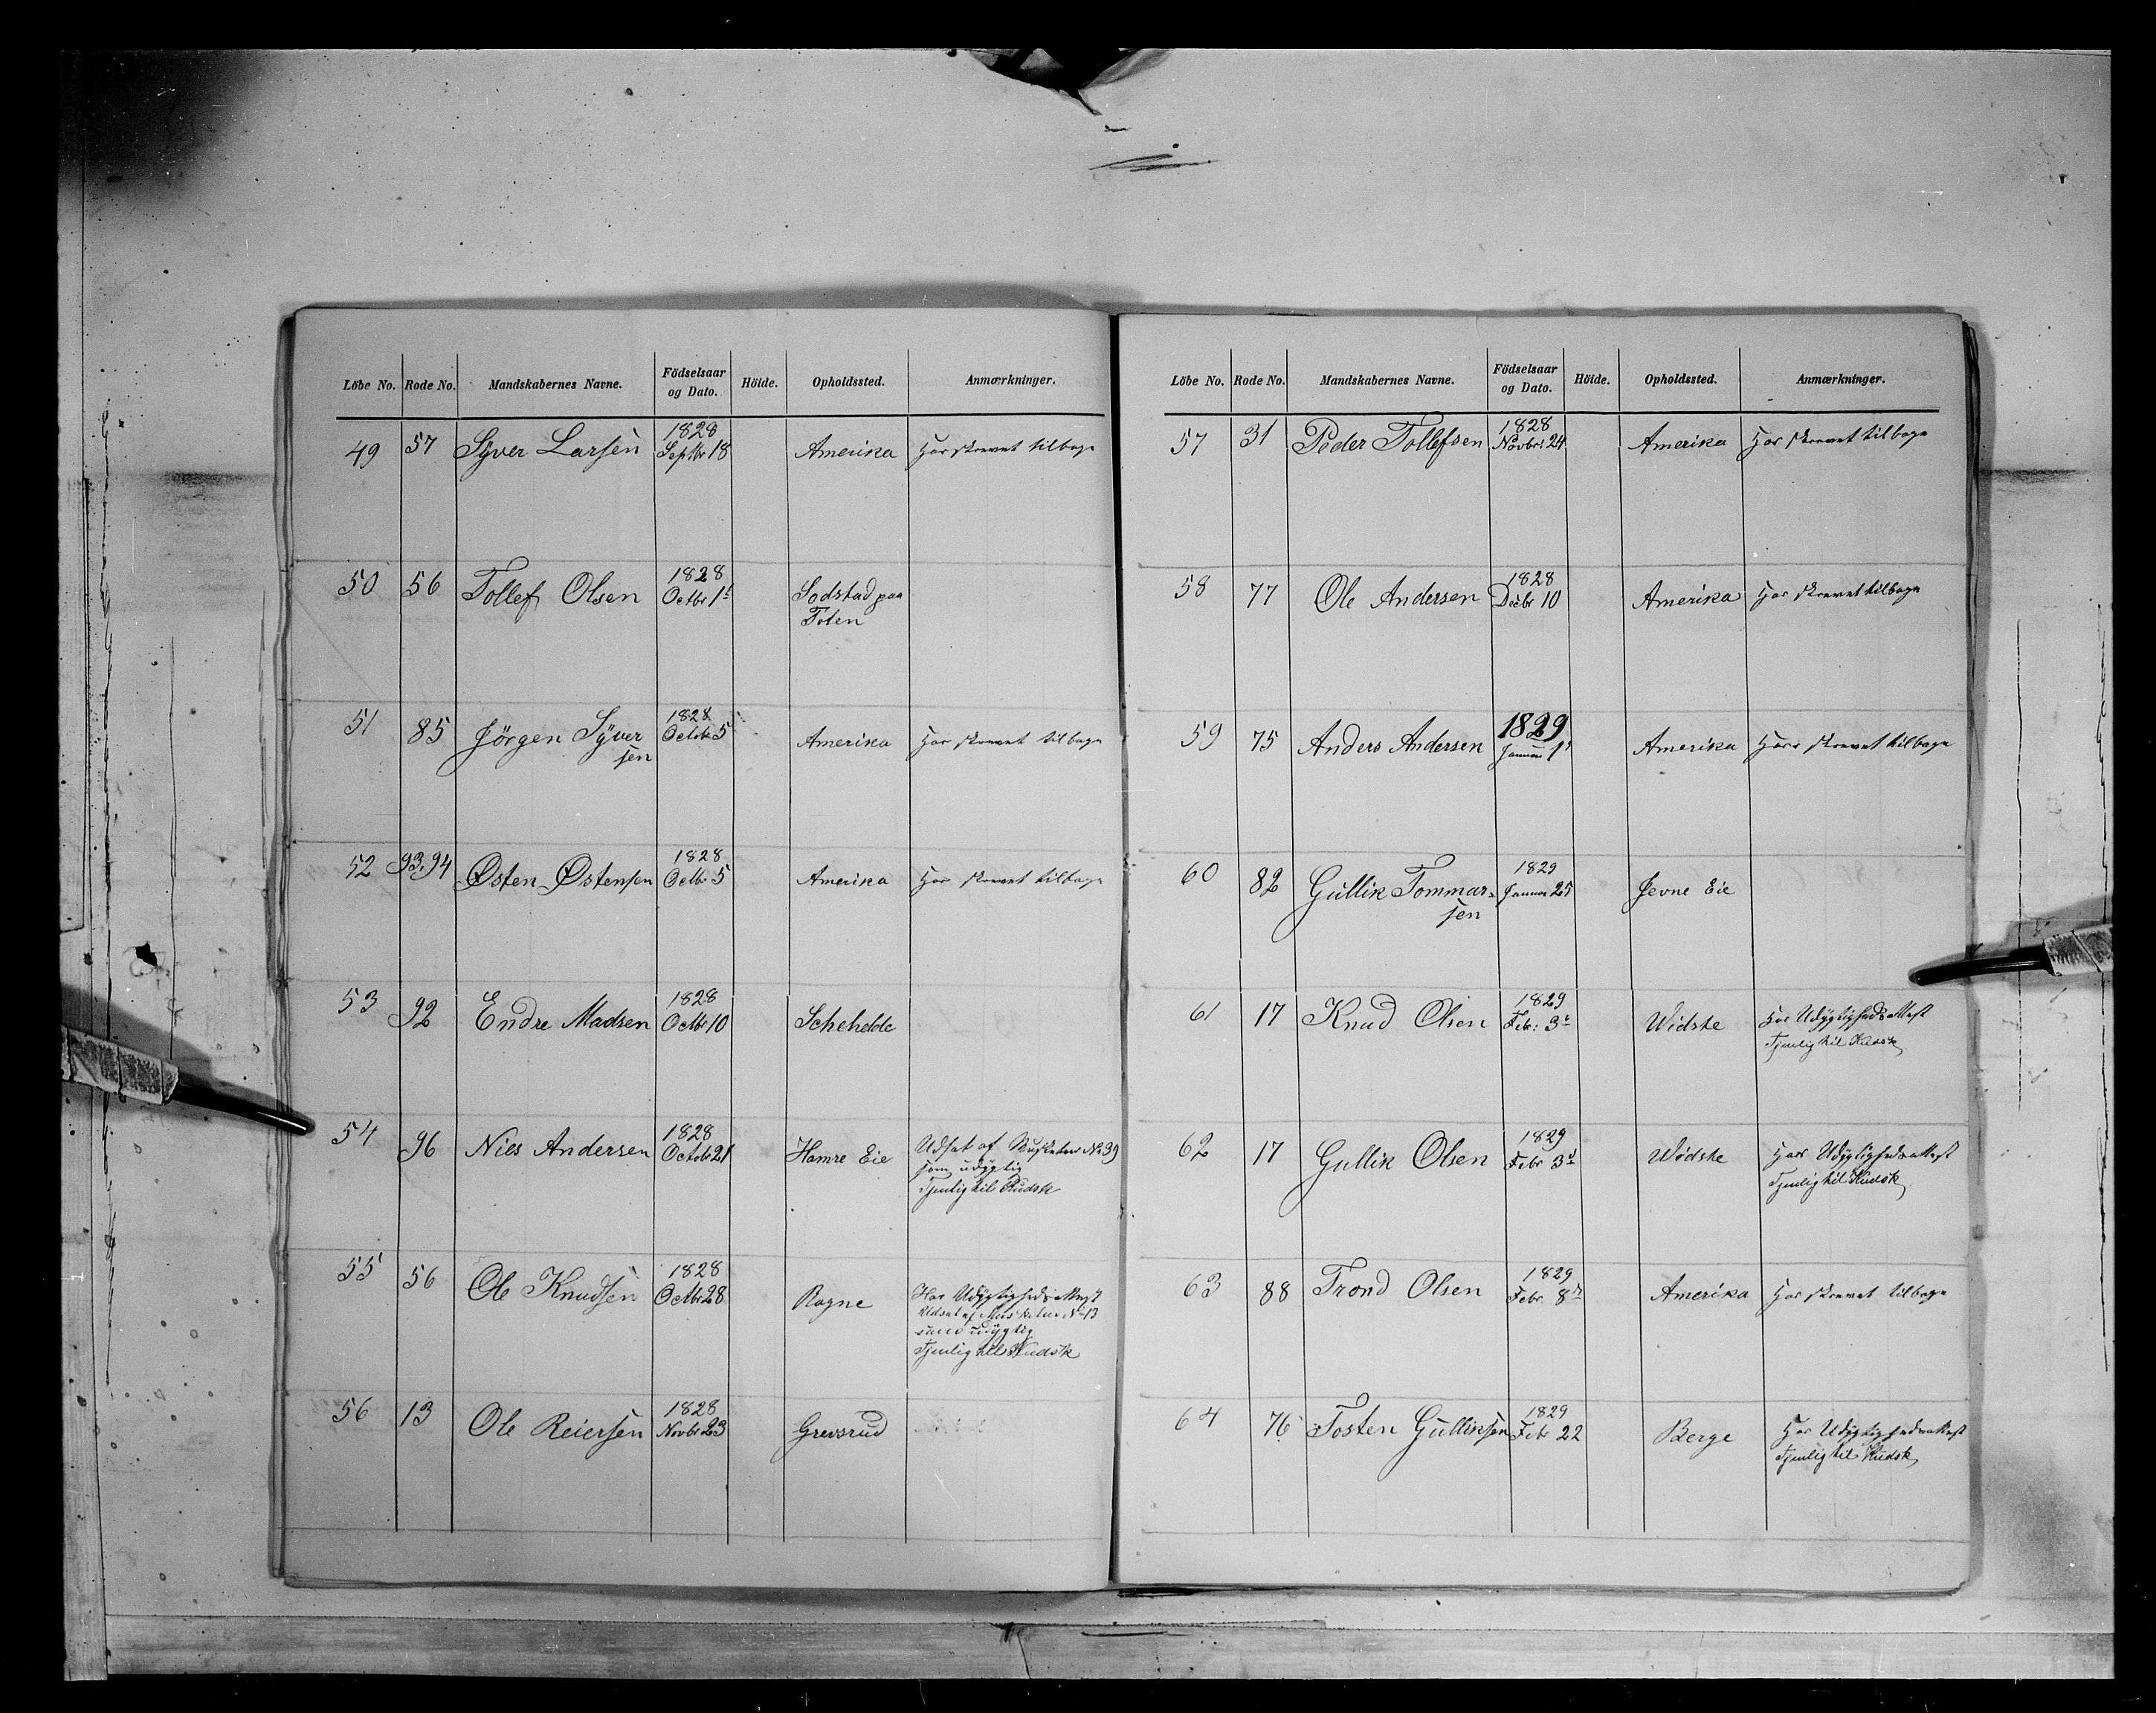 Löbe No. Rode No. Mandskabernes Navne. Födselsaar og Dato. Höide. Opholdssted. Anmærkninger.
49 57 Syver Larsen 1828 Septbr 18 Amerika Har skrevet tilbage
50 56 Tollef Olsen 1828 Octbr 1t Sodstad paa
Toten
51 85 Jörgen Syver 1828 Octob 5 Amerika Har skrevet tilbage
sen
52 93.94 Østen Østensen 1828 Octbr 5 Amerika Har skrevet tilbage
53 92 Endre Madsen 1828 Octbr 10 Schehelde
54 96 Niels Andersen 1828 Octobr 21 Hamre Eie Udsat af Musketeer No 39
som udygtig
Tjenlig til Kudsk
55 56 Ole Knudsen 1828 Octbr 28 Rogne Har Udygtighedsattest
Udsat af Musketeer No 13
som udygtig
Tjenlig til Kudsk
56 13 Ole Reiersen 1828 Novbr 23 Grevsrud
Löbe No. Rode No. Mandskabernes Navne. Födselsaar og Dato. Höide. Opholdssted. Anmærkninger.
57 31 Peder Tollefsen 1828 Novbr: 24 Amerika Har skrevet tilbage
58 77 Ole Andersen 1828 Decbr 10 Amerika Har skrevet tilbage
59 75 Anders Andersen 1829 Januar 1t Amerika Har skrevet tilbage
60 82 Gullik Tommas- 1829 Januar 25 Jevne Eie
sen
61 17 Knud Olsen 1829 Febr: 3t Widste Har Udygtighedsattest
Tjenlig til Kudsk
62 17 Gullik Olsen 1829 Febr 3d Widste Har Udygtighedsattest
Tjenlig til Kudsk
63 88 Trond Olsen 1829 Febr 8de Amerika Har skrevet tilbage
64 76 Tosten Gulliksen 1829 Febr 22 Berge Har Udygtighedsattest
Tjenlig til Kudsk